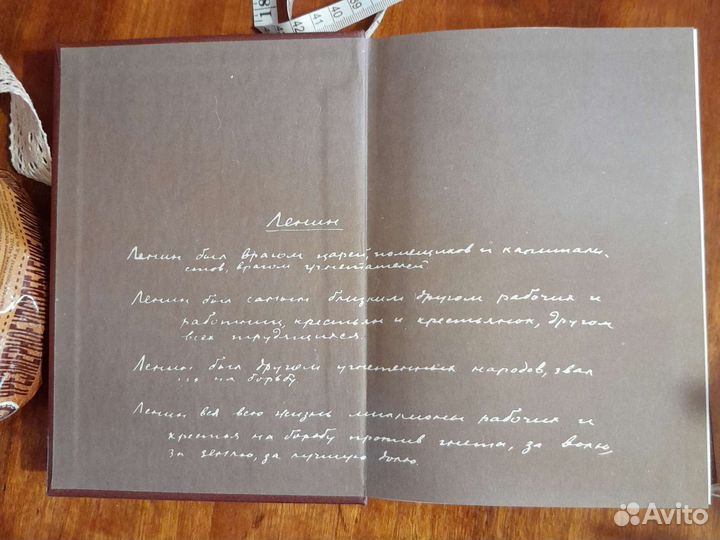 Ленин
Ленин был врагом царей, помещиков и капитали-
стов, врагом угнетателей
Ленин был самым близким другом рабочих и
работниц, крестьян и крестьянок, другом
всех трудящихся.
Ленин был другом угнетенных народов, звал
их на борьбу
Ленин вел всю жизнь миллионы рабочих и
крестьян на борьбу против гнета, за волю,
за землю, за лучшую долю.
42 41 40 39
Avito